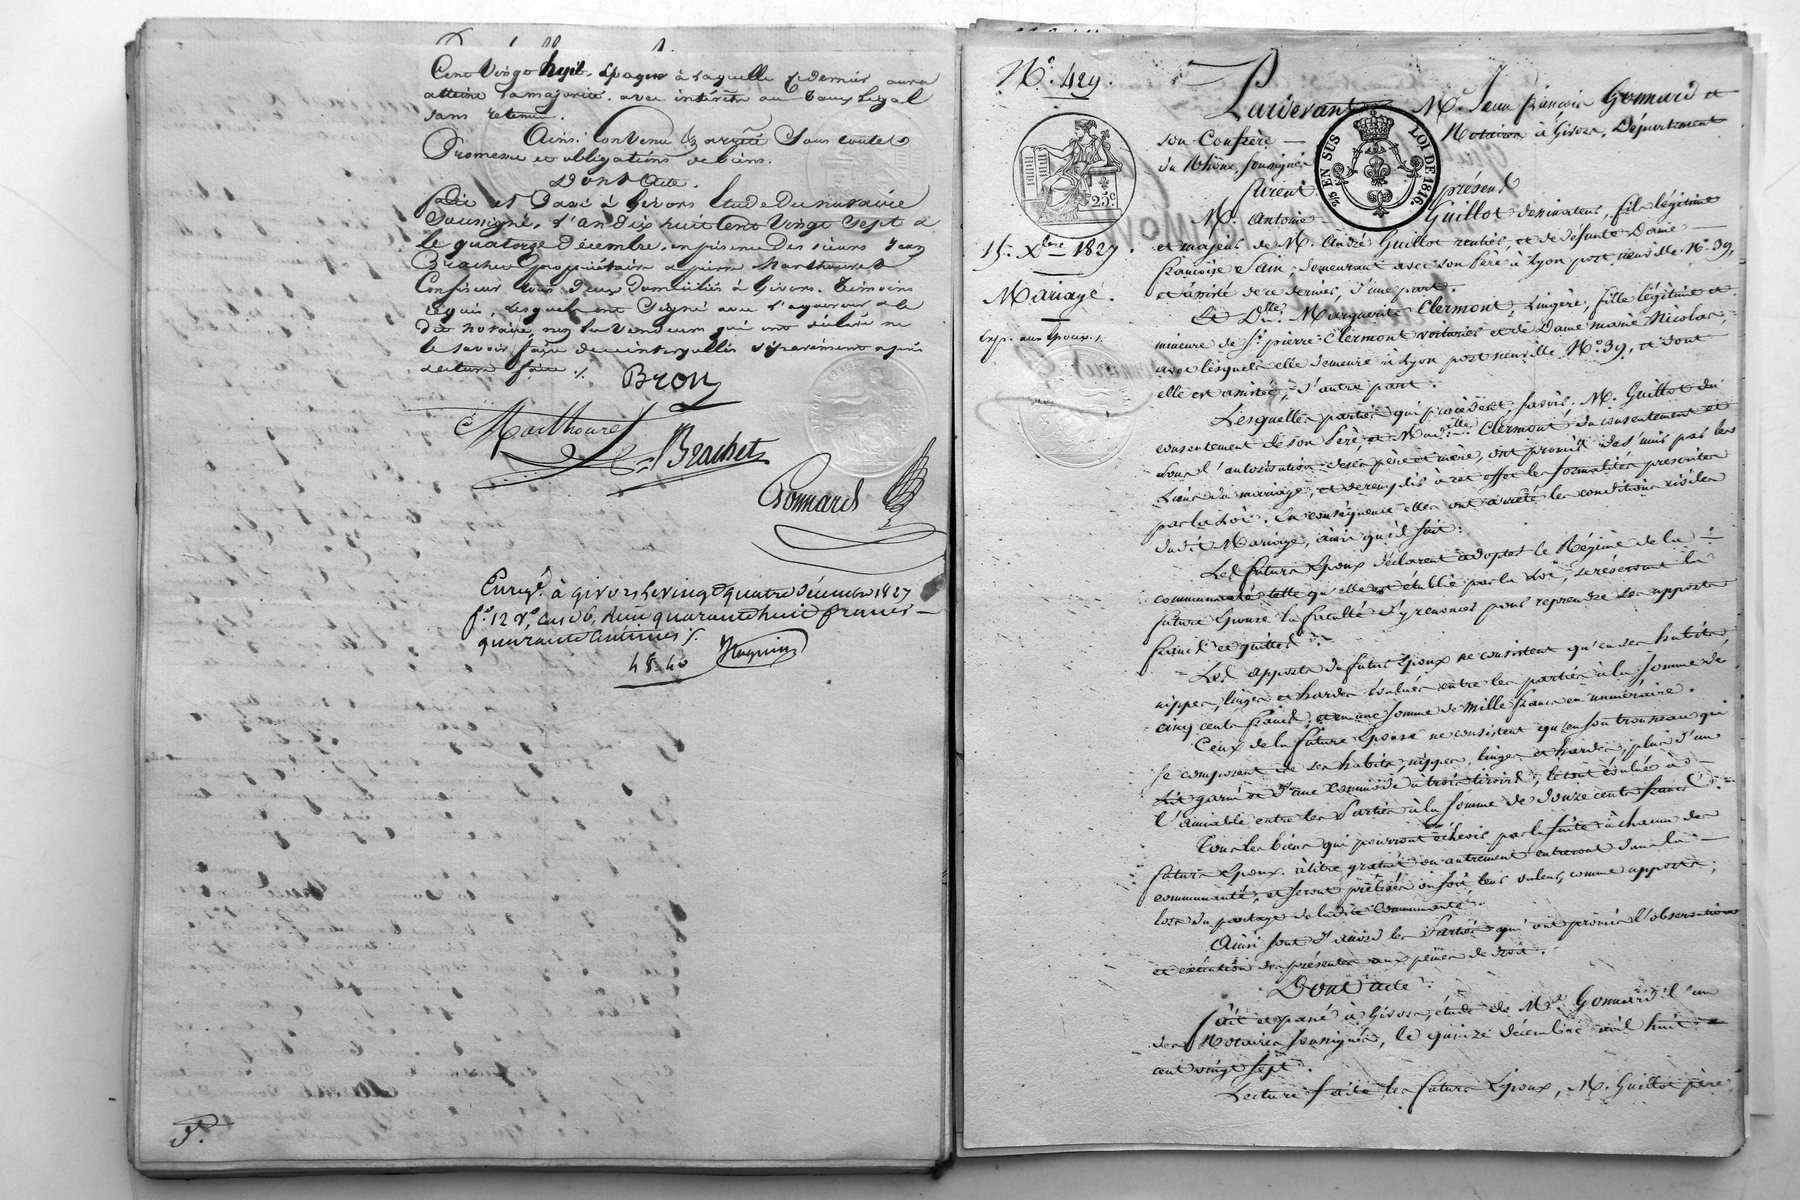 Cent Vingt huit. Epoque à laquelle ce dernier aura
atteint sa majorité. avec intérêts au taux légal
sans retenue.
Ainsi Convenu & arrêté Sous toutes
Promesse et obligations de biens.
Dont Acte.
Fait et Passé à Givors Etude du notaire
Soussigné, l'an dix huit Cent Vingt Sept &
le quatorze décembre, en présence des sieurs Jean
Brachet propriétaire & pierre Marthouret
Confiseur tous deux domiciliés à Givors. témoins
requis, lesquels ont Signé avec l'acquéreur & le
dit notaire, non les Vendeurs qui ont déclaré ne
le savoir faire de ce interpellés séparément après
lecture faite ./.
Bron
Marthouret
Brachet
Gonnard
Enreg. à givors le vingt quatre décembre 1827
f.º 12 rº, cas 6, Reçu quarante huit francs
quarante centimes ./.
48.40
5.
Nº. 429.
Pardevant Mᵉ. Jean françois Gonnard et
son Confrère Notaires à Givors, Département
du Rhône, soussignés
furent présents
25ᶜ
2/10 EN SUS
LOI DE 1816.
Mʳ. Antoine Guillot dessinateur, fils légitime
15. Xbre 1827.
et majeur de M. André Guillot rentier, et de défunte Dame
françoise Sain, demeurant avec son Père à Lyon port neuville Nº 39,
Mariage.
et assisté de ce dernier, d'une part.
Et Dlle. Marguerite Clermont, Lingère, fille légitime et
exp. aux époux ./.
mineure de Sr. pierre Clermont voiturier et de Dame marie Nicolas,
avec lesquels elle demeure à Lyon port neuville Nº. 39, et dont
elle est assistée, d'autre part.
Lesquelles parties qui procèdent, savoir. M. Guillot du
consentement de son Père, et Mademoiselle Clermont du consentement et
sous l'autorisation de ses père et mère, ont promis de s'unir par les
Liens du mariage, et de remplir à cet effet les formalités prescrites
par la Loi. En conséquence elles ont arrêté les conditions civiles
dudit Mariage, ainsi qu'il suit:
Les futurs Epoux déclarent adopter le Régime de la
communauté telle qu'elle est établie par la Loi, se réservant la
future Epouse la faculté d'y renoncer pour reprendre ses apports
francs et quittes.
Les apports du futur Epoux ne consistent qu'en ses habits
nippes, linges et hardes évalués entre les parties à la somme de
cinq cents francs, et en une somme de Mille francs en numéraire.
Ceux de la future Epouse ne consistent qu'en son trousseau qui
se composent de ses habits, nippes, linges et hardes, plus d'un
Lit garni et d'une commode à trois tiroirs, le tout évalué à
l'amiable entre les Parties à la somme de douze cents francs.
Tous les biens qui pourront échoir par la suite à chacun des
futurs Epoux. à titre gratuit ou autrement entreront dans la
communauté, et seront prélevés ou soit leur valeur, comme apports,
lors du partage de ladite Communauté.
Ainsi sont d'accord les Parties qui ont promis l'observation
et exécution des présentes aux peines de droit.
Dont acte.
fait et passé à Givors, étude de Mᵉ. Gonnard l'un
des Notaires soussignés, le quinze décembre mil huit
cent vingt sept.
Lecture faite, les futurs Epoux, M. Guillot père,